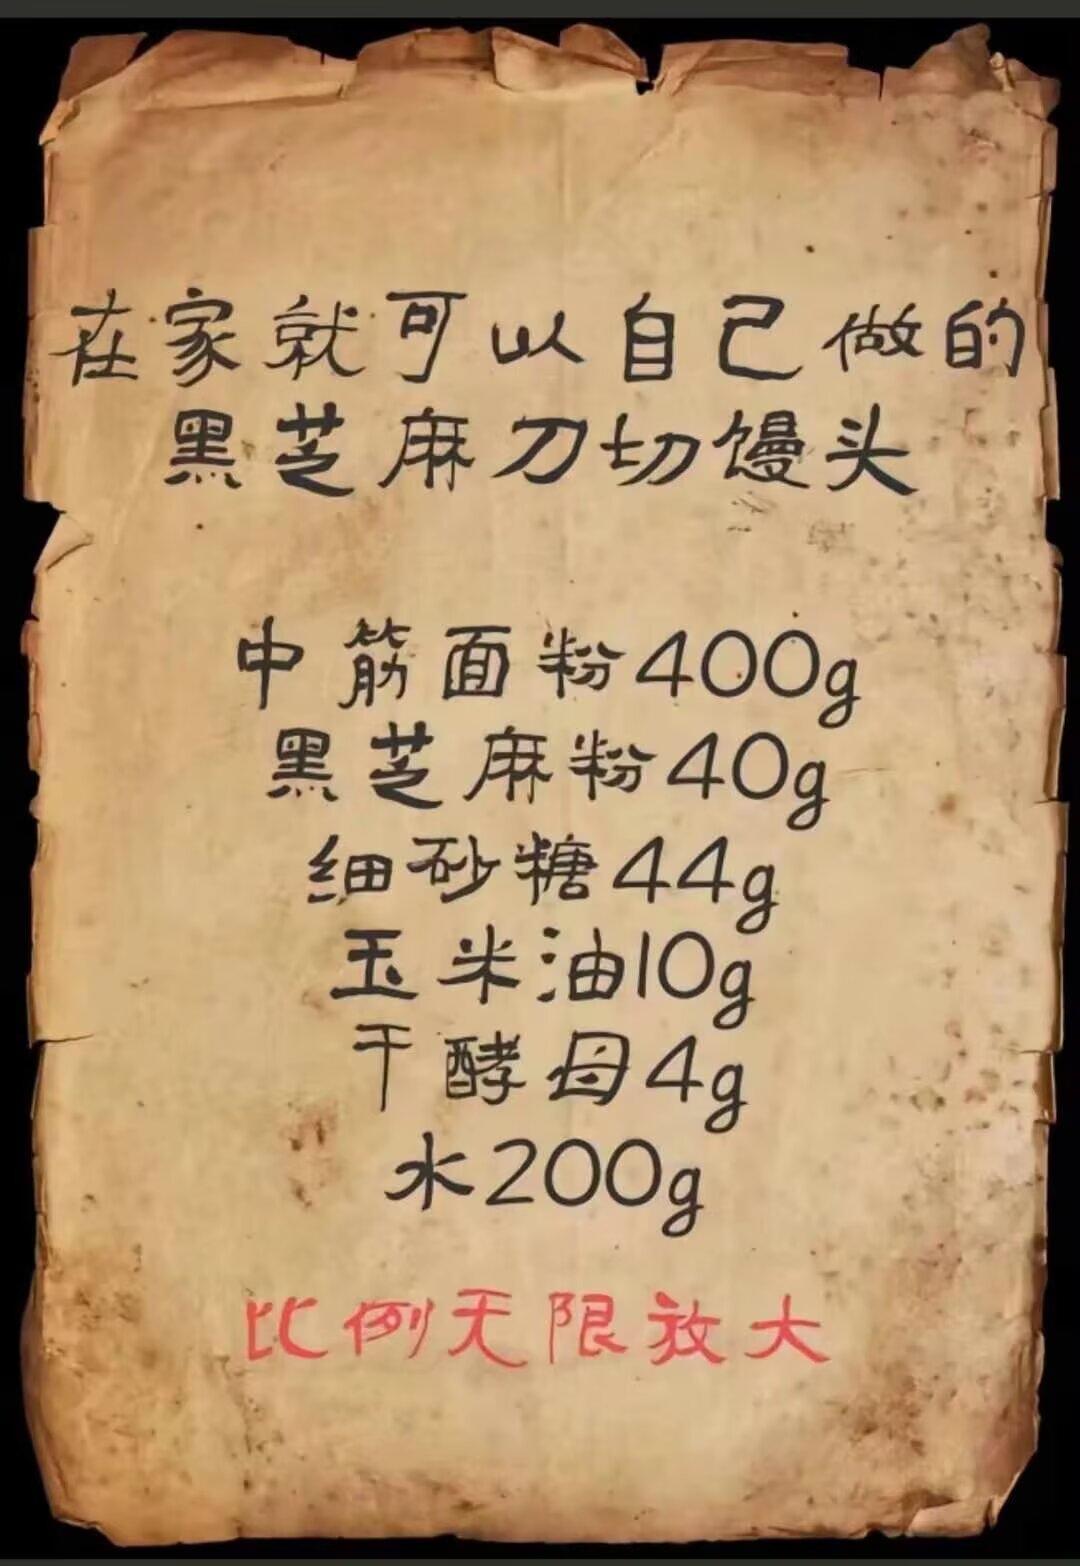 在家就可以自己做的
黑芝麻刀切馒头
中筋面粉400g
黑芝麻粉40g
细砂糖44g
玉米油10g
干酵母4g
水200g
比例无限放大